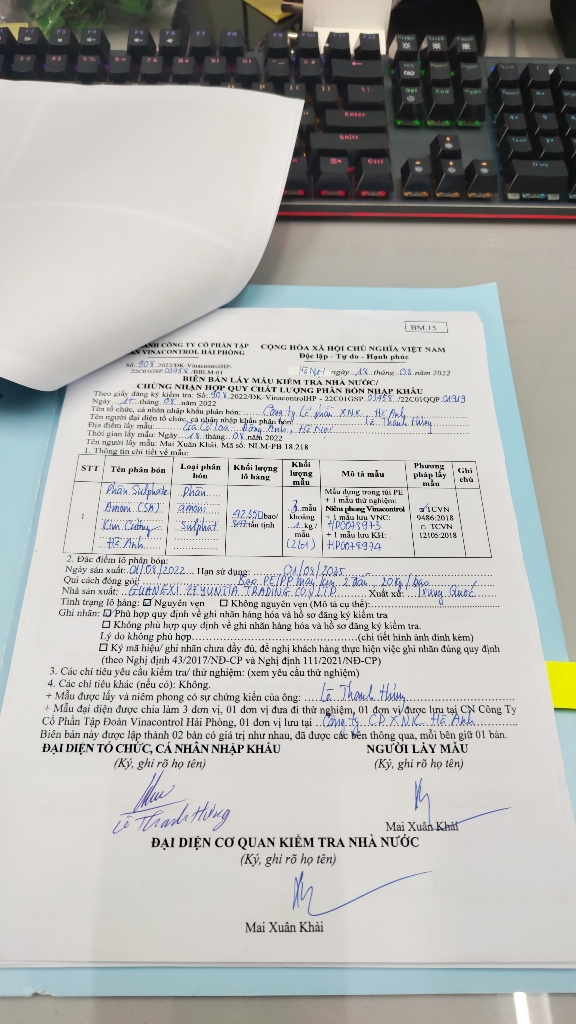 BM.15
ANH CÔNG TY CỔ PHẦN TẬP
CỘNG HÒA XÃ HỘI CHỦ NGHĨA VIỆT NAM
ÀN VINACONTROL HẢI PHÒNG
Độc lập - Tự do - Hạnh phúc
Số: 908.2022/ĐK-VinacontrolHP-
22C01GSP.03458/BBLM-01
Hà Nội, ngày 18 tháng 08 năm 2022
BIÊN BẢN LẤY MẪU KIỂM TRA NHÀ NƯỚC/
CHỨNG NHẬN HỢP QUY CHẤT LƯỢNG PHÂN BÓN NHẬP KHẨU
Theo giấy đăng ký kiểm tra: Số: 908.2022/ĐK-VinacontrolHP - 22C01GSP.03458./22C01QQP.01919
Ngày 17. tháng .08. năm 2022
Tên tổ chức, cá nhân nhập khẩu phân bón: Công ty Cổ phần XNK Hà Anh
Tên người đại diện tổ chức, cá nhân nhập khẩu phân bón: Lê Thanh Hưng
Địa điểm lấy mẫu: Cổ Loa, Đông Anh, Hà Nội
Thời gian lấy mẫu: Ngày 18. tháng .08. năm 2022
Tên người lấy mẫu: Mai Xuân Khải. Mã số: NLM-PB 18.218
1. Thông tin chi tiết về mẫu:
STT Tên phân bón Loại phân bón Khối lượng lô hàng Khối lượng mẫu Mô tả mẫu Phương pháp lấy mẫu Ghi chú
1
Phân Sulphate
Amoni (SA)
Kim Cương
Hà Anh
Phân
amoni
sulphat
42.350 bao/
847 tấn tịnh
3 mẫu
khoảng
1 kg/
mẫu
Mẫu đựng trong túi PE
+ 1 mẫu thử nghiệm:
Niêm phong Vinacontrol
+ 1 mẫu lưu VNC:
HP0078973
+ 1 mẫu lưu KH:
HP0078974
☑ TCVN
9486:2018
□ TCVN
12105:2018
2. Đặc điểm lô phân bón:
Ngày sản xuất: 01/08/2022 Hạn sử dụng: 01/08/2025
Qui cách đóng gói: Bao PE/PP may kín 2 đầu, 20kg/bao
Nhà sản xuất: GUANGXI ZEYUNTIA TRADING CO., LTD Xuất xứ: Trung Quốc
Tình trạng lô hàng: ☑ Nguyên vẹn □ Không nguyên vẹn (Mô tả cụ thể):
Ghi nhãn: ☑ Phù hợp quy định về ghi nhãn hàng hóa và hồ sơ đăng ký kiểm tra
□ Không phù hợp quy định về ghi nhãn hàng hóa và hồ sơ đăng ký kiểm tra.
Lý do không phù hợp (chi tiết hình ảnh đính kèm)
□ Ký mã hiệu/ ghi nhãn chưa đầy đủ, đề nghị khách hàng thực hiện việc ghi nhãn đúng quy định
(theo Nghị định 43/2017/NĐ-CP và Nghị định 111/2021/NĐ-CP)
3. Các chỉ tiêu yêu cầu kiểm tra/ thử nghiệm: (xem yêu cầu thử nghiệm)
4. Các chỉ tiêu khác (nếu có): Không.
+ Mẫu được lấy và niêm phong có sự chứng kiến của ông: Lê Thanh Hưng
+ Mẫu đại diện được chia làm 3 đơn vị, 01 đơn vị đưa đi thử nghiệm, 01 đơn vị được lưu tại CN Công Ty
Cổ Phần Tập Đoàn Vinacontrol Hải Phòng, 01 đơn vị lưu tại Công ty CP XNK Hà Anh
Biên bản này được lập thành 02 bản có giá trị như nhau, đã được các bên thông qua, mỗi bên giữ 01 bản.
ĐẠI DIỆN TỔ CHỨC, CÁ NHÂN NHẬP KHẨU
NGƯỜI LẤY MẪU
(Ký, ghi rõ họ tên)
(Ký, ghi rõ họ tên)
Lê Thanh Hưng
Mai Xuân Khải
ĐẠI DIỆN CƠ QUAN KIỂM TRA NHÀ NƯỚC
(Ký, ghi rõ họ tên)
Mai Xuân Khải